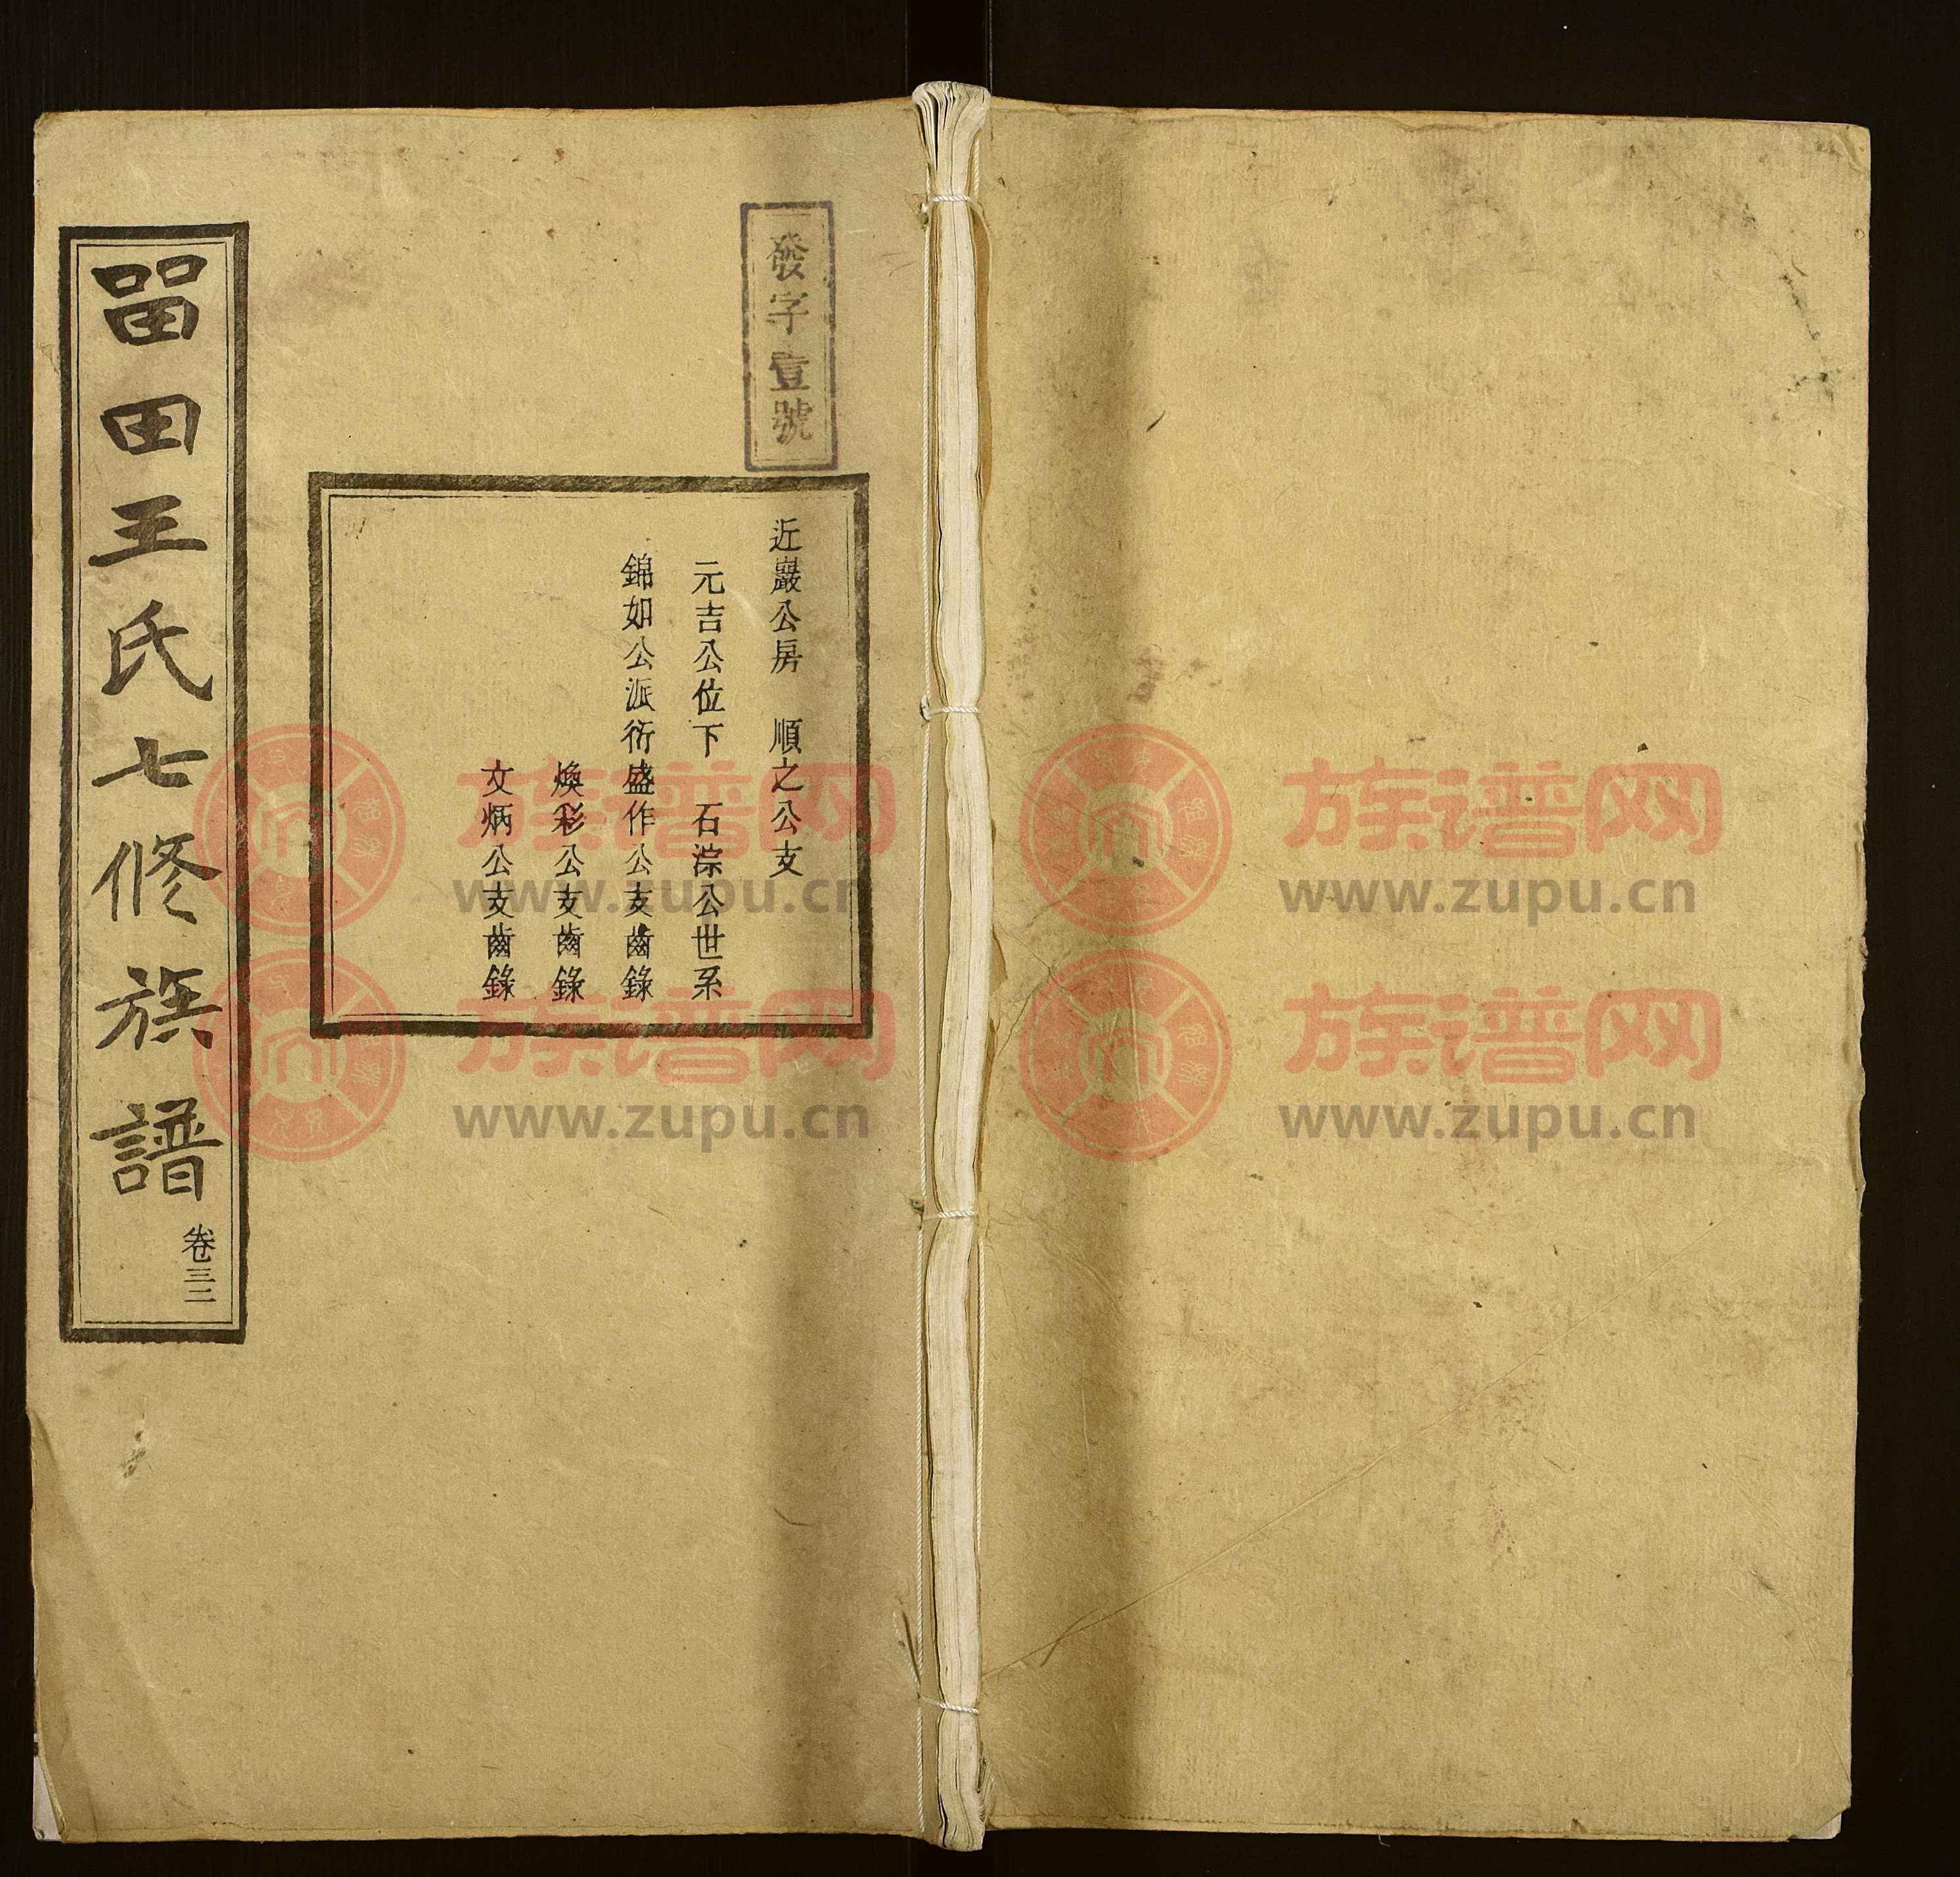 發字壹號
近巖公房　順之公支
元吉公位下　石淙公世系
錦如公派衍盛作公支齒錄
煥彩公支齒錄
文炳公支齒錄
畱田王氏七修族譜
卷三二
族谱网
www.zupu.cn
族谱网
www.zupu.cn
族谱网
www.zupu.cn
族谱网
www.zupu.cn